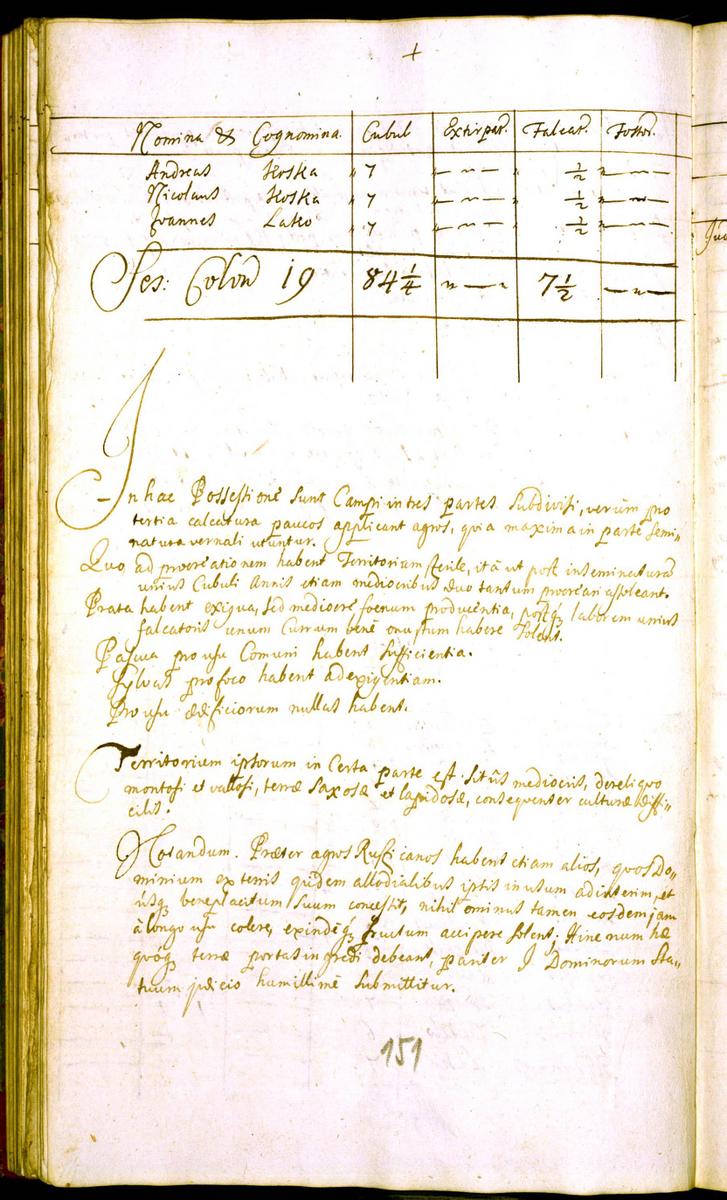 +
Nomina & Cognomina. Cubul Extirpat. Falcat. Foster.
Andreas Hoska " 7 "—"— " ½ "—"—
Nicolaus Hoska " 7 "—"— " ½ "—"—
Joannes Lako " 7 "—"— " ½ "—"—
Ses: Colon 19 84¼ "—" 7½ —"—
In hac Possessione sunt Campi in tres partes subdivisi, verum pro
tertia calcatura paucos applicant agros, quia maxima in parte semi„
natura vernali utuntur.
Quo ad procreationem habent Territorium sterile, ità ut post inseminaturã
unius Cubuli annis etiam mediocribus duo tantum procreari assoleant.
Prata habent exigua, sed mediocre foenum producentia, postq3 laborem unius
falcatoris unum Currum benè onustum habere solent.
Pascua pro usu Comuni habent sufficientia.
Sylvas pro foco habent ad exigentiam.
Pro usu ædificiorum nullas habent.
Territorium ipsorum in Certa parte est sitûs mediocris, de reliquo
montosi et vallosi, terræ saxosæ et lapidosæ, consequenter culturæ diffi„
cilis.
Notandum. Præter agros Rusticanos habent etiam alios, quos Do„
minium ex terris quidem allodialibus ipsis in usum ad interim, et
usq3 beneplacitum suum concessit, nihil ominus tamen eosdem jam
à longo usu colere, exindeq3 fructum accipere solent; Hinc num hæ
quoq3 terræ portas ingredi debeant, pariter I Dominorum Sta„
tuum judicio humillimè submittitur.
151